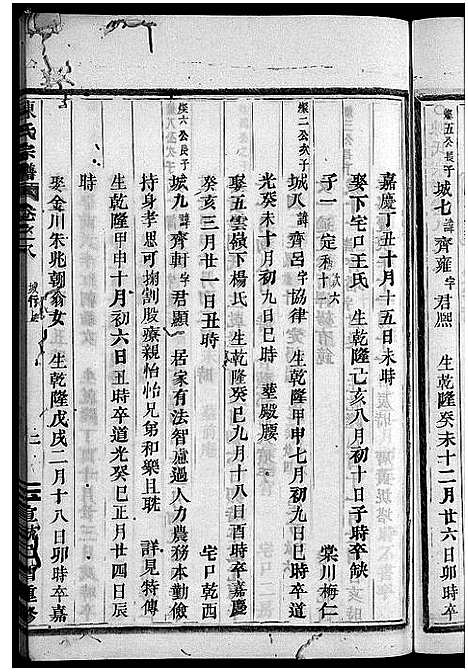 燦五公長子
城七諱齊雍字君熈 生乾隆癸未十二月廿六日卯時卒
嘉慶丁丑十月十五日未時
娶下宅口王氏 生乾隆己亥八月初十日子時卒缺
子一 定
燦二公次子
城八諱齊呂字協律 生乾隆甲申七月初九日巳時卒道
光癸未十月初九日巳時 葬殿腰 棠川梅仁
娶五雲嶺下楊氏 生乾隆癸巳九月十八日酉時卒嘉慶
癸亥三月廿一日丑時 宅口乾西
燦六公長子
城九諱齊軒字君顯 居家有法智慮過人力農務本勤儉
持身孝思可掬割股療親怡怡兄弟和樂且耽 詳見特傳
生乾隆甲申十月初六日丑時卒道光癸巳正月廿四日辰
時
娶金川朱兆朝翁女 生乾隆戊戌二月十八日卯時卒嘉
陳氏宗譜 卷之八 城行 上 重修